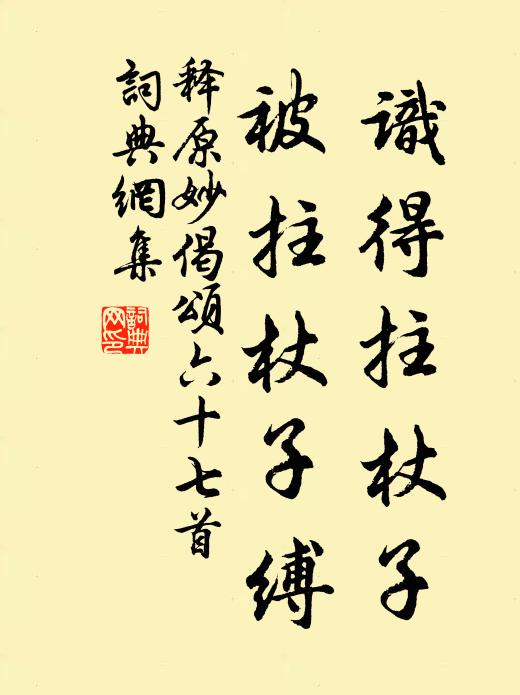 識得拄杖子
被拄杖子縛
释原妙偈頌六十七首
詞典網集
詞典
网印